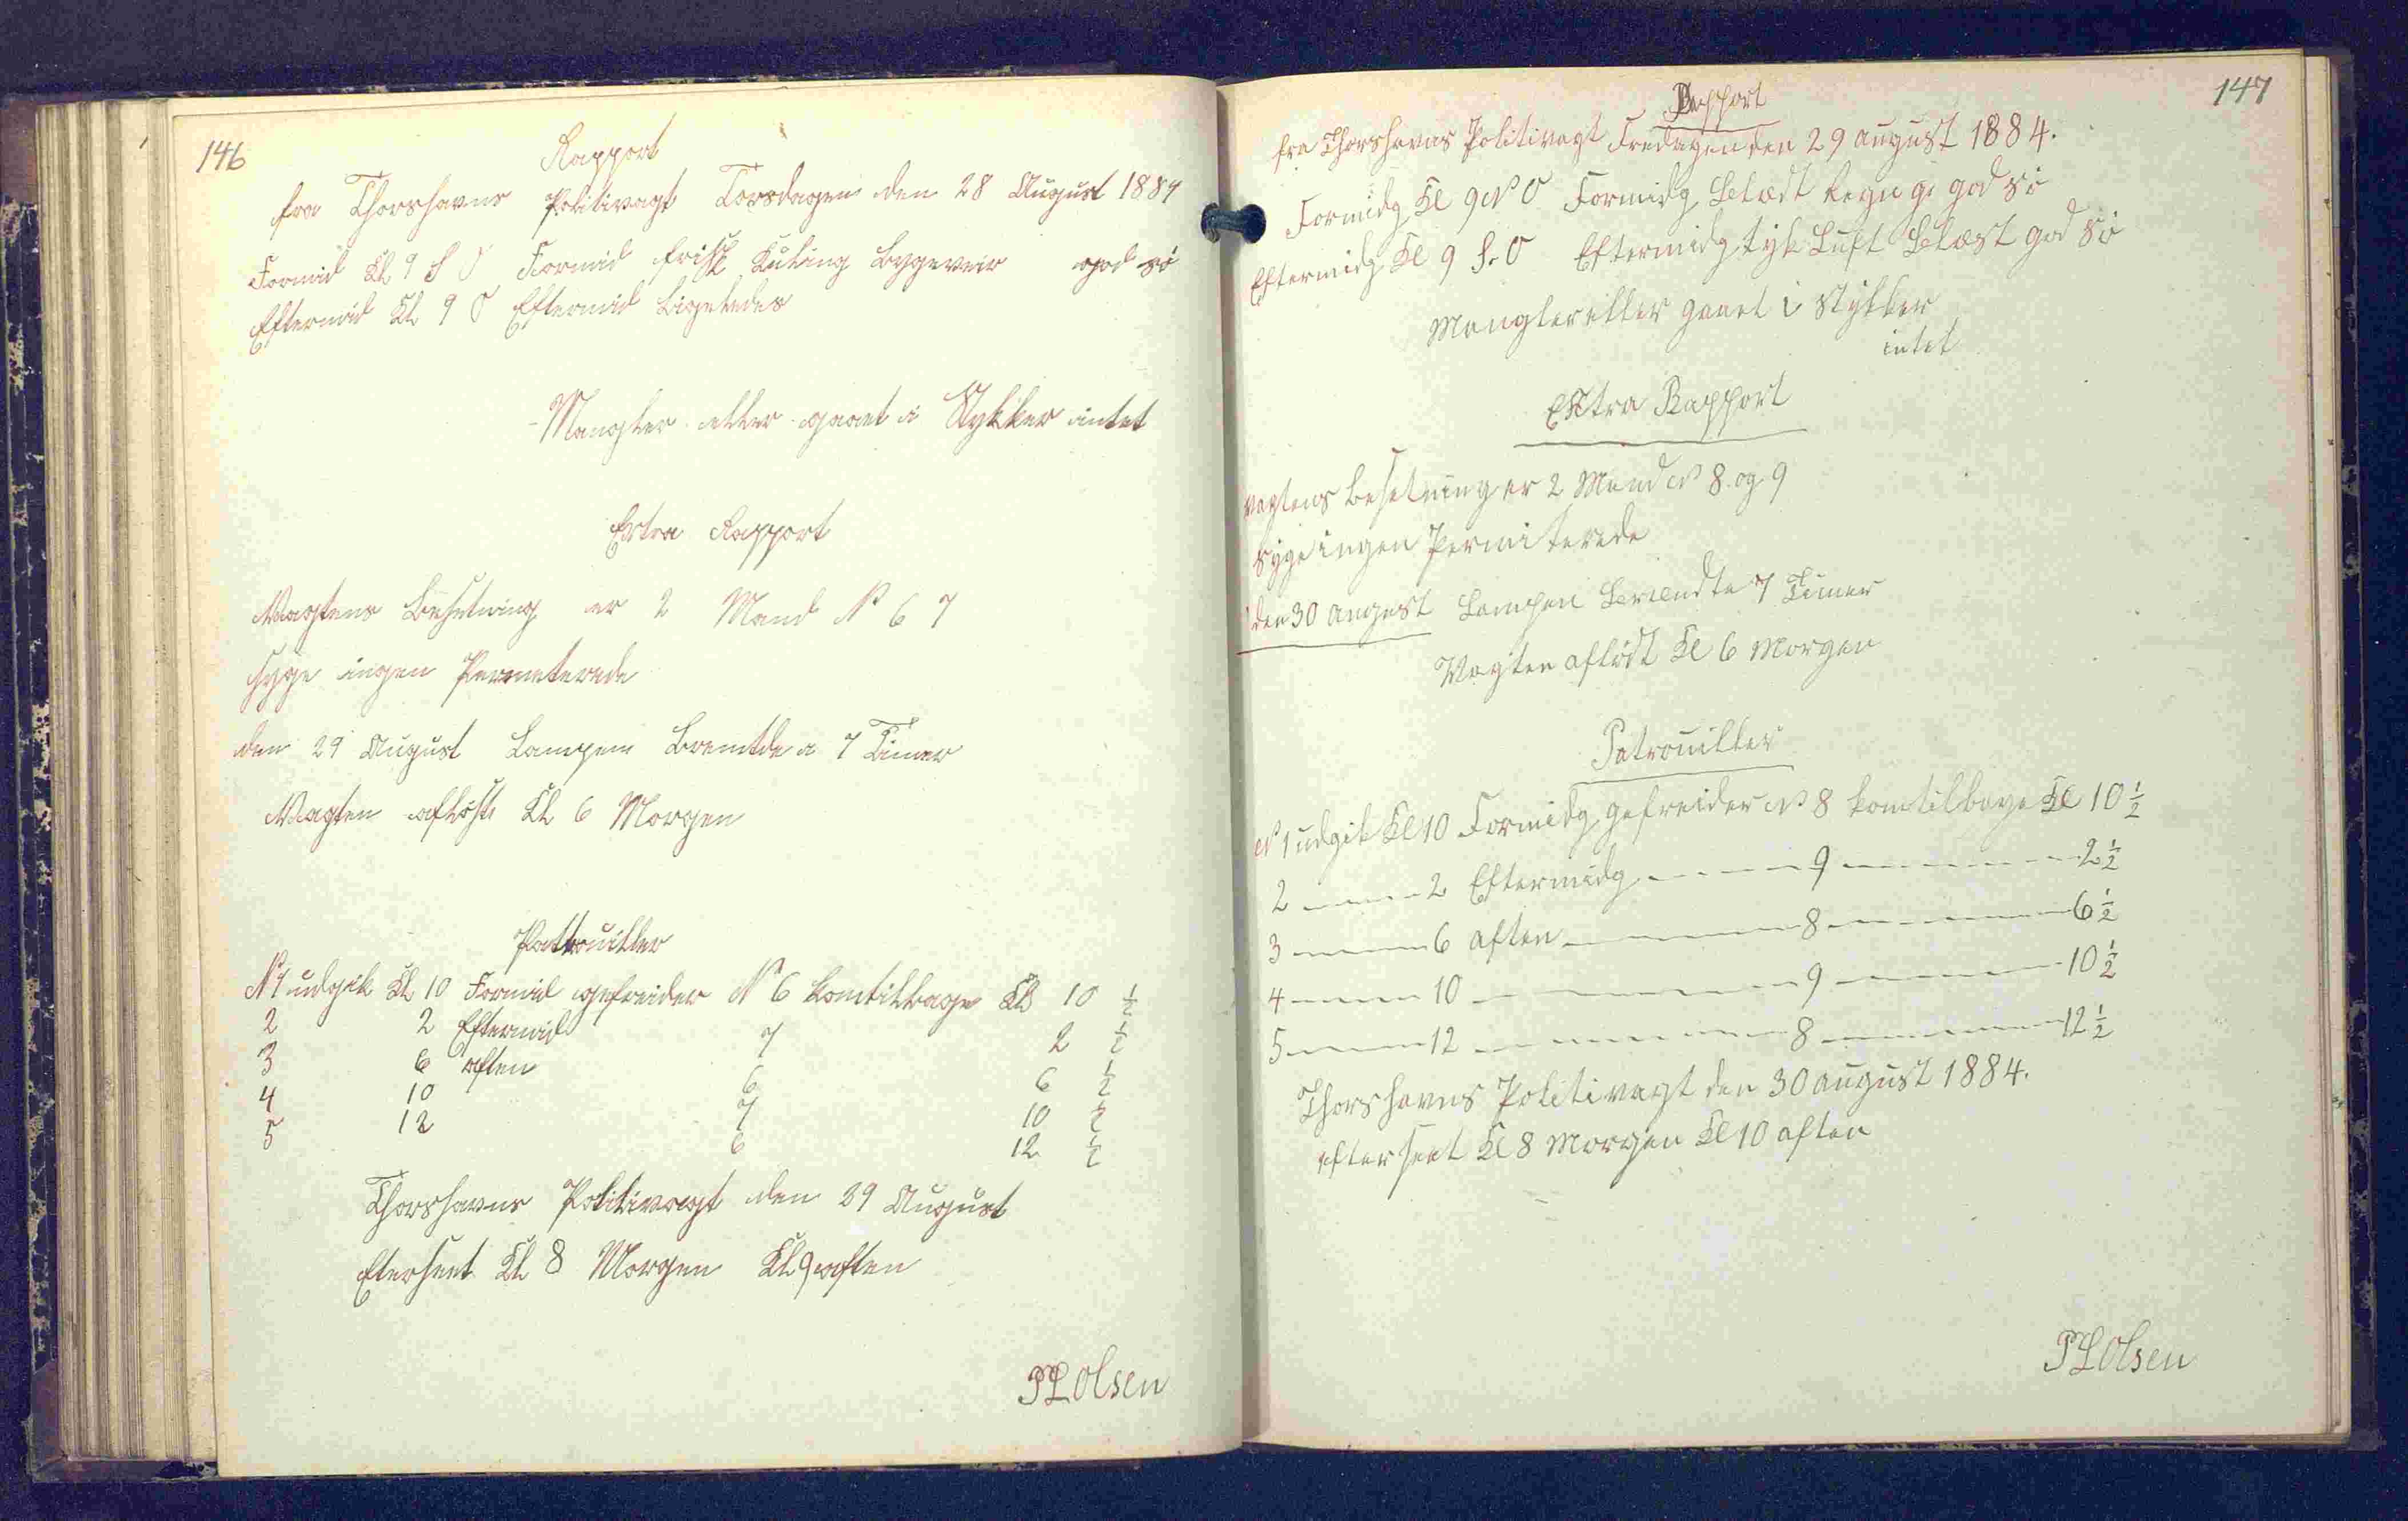 146
Rapport
fra Thorshavns Politivagt Torsdagen den 28 August 1884
Formid Kl 9 S O Formid frisk Kuling Bygeveir god sö
Eftermid Kl 9 O Eftermid ligeledes
Mangler eller gaaet i Stykker intet
Extra Rapport
Vagtens Besetning er 2 Mand N 6 7
syge ingen Permeterede
den 29 August Lampen Bremtde a 7 Timer
Vagten aflöst Kl 6 Morgen
Pattrouiller
N 1 udgik Kl 10 Formid gefreider N 6 komtilbage Kl 10 ½
2 2 Eftermid 7 2 ½
3 6 aften 6 6 ½
4 10 7 10 ½
5 12 6 12 ½
Thorshavns Politivagt den 29 August
Eterseet Kl 8 Morgen Kl 9 aften
PL Olsen
147
Rapport
fra Thorshavns Politivagt Fredagen den 29 august 1884.
Formidg Kl 9 N O Formidg Blæst Regn g. god sö
Eftermidg Kl 9 S. O Eftermidg tyk Luft Blæst god sö
Mangler eller gaaet i stykker
intet
Extra Rapport
vagtens besetning er 2 Mand N 8. og 9
syge ingen Permiterede
den 30 august Lampen Brændte 7 Timer
Vagten aflöst Kl 6 Morgen
Patrouiller
N 1 udgik Kl 10 Formidg gefreider N 8 komtilbage Kl 10 ½
2 — 2 Eftermidg — 9 — 2 ½
3 — 6 aften — 8 — 6 ½
4 — 10 — 9 — 10 ½
5 — 12 — 8 — 12 ½
Thorshavns Politivagt den 30 august 1884.
efterseet Kl 8 Morgen Kl 10 aften
PL Olsen